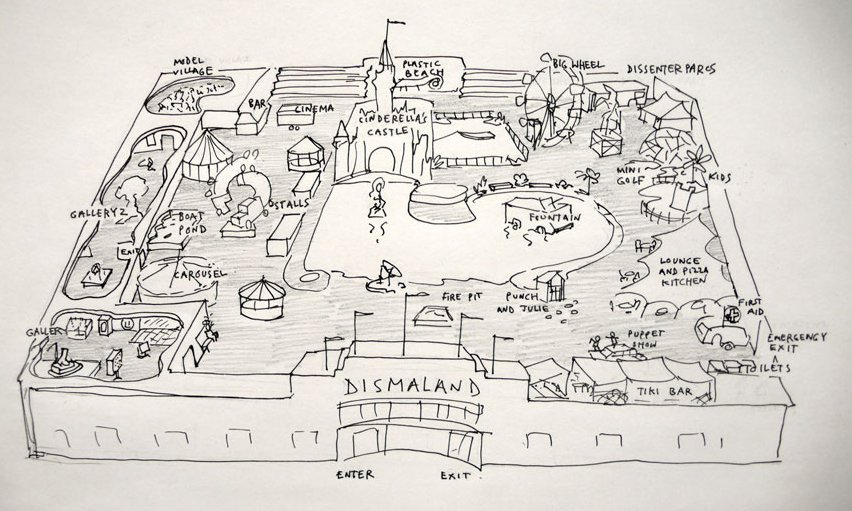 MODEL
VILLAGE
PLASTIC
BEACH
BIG WHEEL
DISSENTER PARCS
BAR
CINEMA
CINDERELLA'S
CASTLE
MINI
GOLF
KIDS
GALLERY 2
STALLS
BOAT
POND
FOUNTAIN
EXIT
CAROUSEL
LOUNGE
AND PIZZA
KITCHEN
FIRE PIT
PUNCH
AND JULIE
FIRST
AID
GALLERY 1
PUPPET
SHOW
EMERGENCY
EXIT
TOILETS
DISMALAND
TIKI BAR
ENTER
EXIT